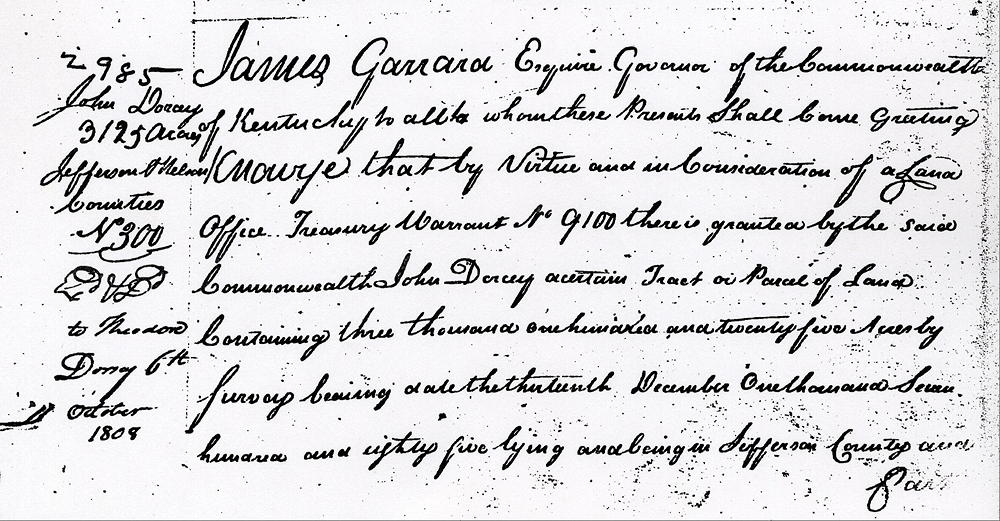 2985
John Dorcey
3125 Acres
Jefferson & Nelson
Counties
No 300
Ed & Dd
to Theodore
Dorsey 6th
October
1808
James Garrard Esquire Governor of the Commonwealth
of Kentucky to all to whom these Presents Shall Come Greeting
Know ye that by Virtue and in Consideration of a Land
Office Treasury Warrant No 9100 there is granted by the said
Commonwealth John Dorcey a certain Tract or Parcel of Land
Containing three thousand one hundred and twenty five Acres by
Survey bearing date the thirteenth December One thousand Seven
hundred and eighty five lying and being in Jefferson County and
Par